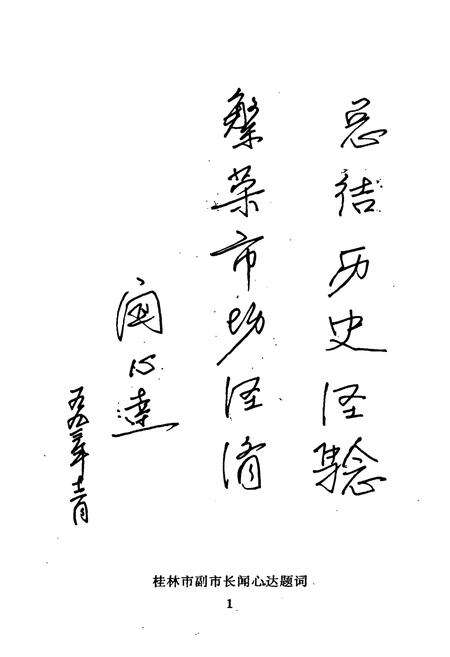 总结历史经验
繁荣市场经济
闻心达
一九九三年十二月
桂林市副市长闻心达题词
1